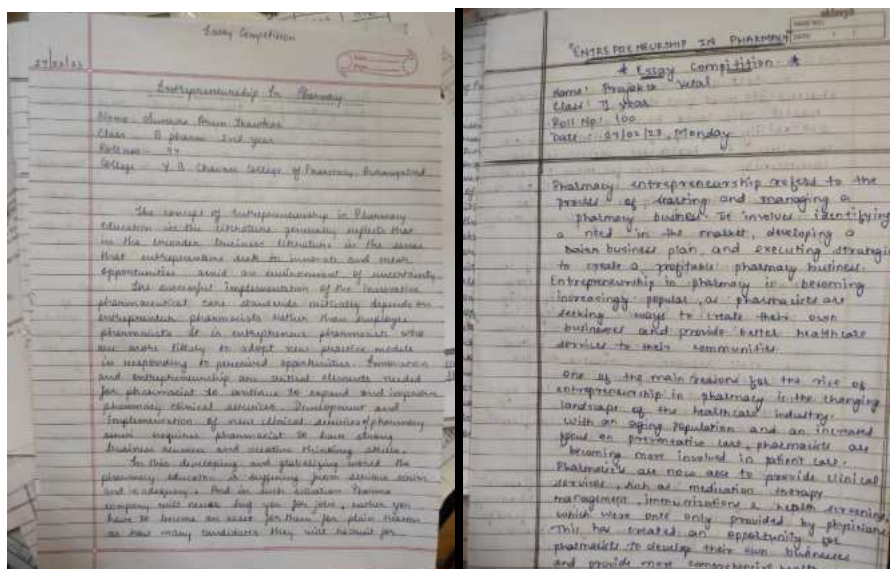 Essay Competition
Entrepreneurship In Pharmacy
Name
Class B pharm 2nd year
Roll no: 97
College Y. B. Chavan College of Pharmacy, Aurangabad
The concept of entrepreneurship in Pharmacy
education in the literature generally reflects that
in the broader business literature in the sense
that entrepreneurs seek to innovate and
opportunities amid an environment of uncertainty.
The successful implementation of the innovative
pharmaceutical care standards critically depends on
entrepreneur pharmacists rather than employee
pharmacists. It is entrepreneur pharmacists who
are more likely to adopt new practice models
in responding to perceived opportunities. Innovation
and entrepreneurship are critical elements needed
for pharmacist to continue to expand and improve
pharmacy clinical services. Development and
implementation of new clinical services/pharmacy
requires pharmacist to have strong
business acumen and creative thinking skills.
In this developing and globalizing world the
pharmacy education is suffering from serious
and inadequacy. And in such situation Pharma
company will never beg you for jobs, rather you
have to become an asset for them for plain reason
as how many candidates they will recruit for
ENTREPRENEURSHIP IN PHARMACY
* Essay Compitition *
Name: Prajakta Vetal
Class: II year
Roll No: 100
Date: 27/02/23, Monday
Pharmacy entrepreneurship refers to the
process of starting and managing a
pharmacy business. It involves identifying
a need in the market, developing a
business plan, and executing strategies
to create a profitable pharmacy business.
Entrepreneurship in pharmacy is becoming
increasingly popular, as pharmacists are
seeking ways to create their own
businesses and provide better healthcare
services to their communities.
One of the main reasons for the rise of
entrepreneurship in pharmacy is the changing
landscape of the healthcare industry.
With an aging population and an increased
focus on preventative care, pharmacists are
becoming more involved in patient care.
Pharmacists are now able to provide clinical
services, such as medication therapy
management, immunizations & health screening
which were once only provided by physicians
This has created an opportunity for
pharmacists to develop their own businesses
and provide more comprehensive health